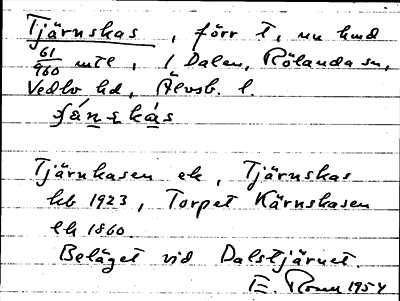 Tjärnskas, förr t, nu hmd
61/960 mtl, i Dalen, Rölanda sn,
Vedbo hd, Älvsb. l.
Tjärnkasen ek, Tjärnskas
hb 1923, Torpet Kärnskasen
lk 1860.
Beläget vid Dalstjärnet.
E. 1954